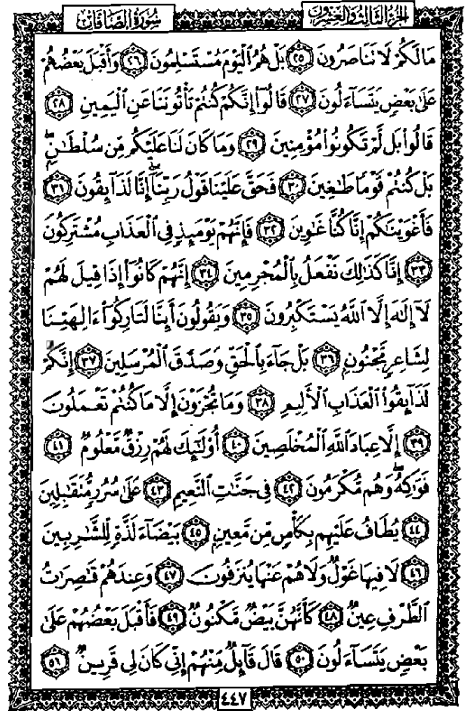 الجزء الثالث والعشرون
سورة الصافات
مَا لَكُمْ لَا تَنَاصَرُونَ ٢٥ بَلْ هُمُ الْيَوْمَ مُسْتَسْلِمُونَ ٢٦ وَأَقْبَلَ بَعْضُهُمْ
عَلَىٰ بَعْضٍ يَتَسَاءَلُونَ ٢٧ قَالُوا إِنَّكُمْ كُنتُمْ تَأْتُونَنَا عَنِ الْيَمِينِ ٢٨
قَالُوا بَل لَّمْ تَكُونُوا مُؤْمِنِينَ ٢٩ وَمَا كَانَ لَنَا عَلَيْكُم مِّن سُلْطَانٍ ۖ
بَلْ كُنتُمْ قَوْمًا طَاغِينَ ٣٠ فَحَقَّ عَلَيْنَا قَوْلُ رَبِّنَا ۖ إِنَّا لَذَائِقُونَ ٣١
فَأَغْوَيْنَاكُمْ إِنَّا كُنَّا غَاوِينَ ٣٢ فَإِنَّهُمْ يَوْمَئِذٍ فِي الْعَذَابِ مُشْتَرِكُونَ
٣٣ إِنَّا كَذَٰلِكَ نَفْعَلُ بِالْمُجْرِمِينَ ٣٤ إِنَّهُمْ كَانُوا إِذَا قِيلَ لَهُمْ
لَا إِلَٰهَ إِلَّا اللَّهُ يَسْتَكْبِرُونَ ٣٥ وَيَقُولُونَ أَئِنَّا لَتَارِكُوا آلِهَتِنَا
لِشَاعِرٍ مَّجْنُونٍ ٣٦ بَلْ جَاءَ بِالْحَقِّ وَصَدَّقَ الْمُرْسَلِينَ ٣٧ إِنَّكُمْ
لَذَائِقُوا الْعَذَابِ الْأَلِيمِ ٣٨ وَمَا تُجْزَوْنَ إِلَّا مَا كُنتُمْ تَعْمَلُونَ
٣٩ إِلَّا عِبَادَ اللَّهِ الْمُخْلَصِينَ ٤٠ أُولَٰئِكَ لَهُمْ رِزْقٌ مَّعْلُومٌ ٤١
فَوَاكِهُ ۖ وَهُم مُّكْرَمُونَ ٤٢ فِي جَنَّاتِ النَّعِيمِ ٤٣ عَلَىٰ سُرُرٍ مُّتَقَابِلِينَ
٤٤ يُطَافُ عَلَيْهِم بِكَأْسٍ مِّن مَّعِينٍ ٤٥ بَيْضَاءَ لَذَّةٍ لِّلشَّارِبِينَ
٤٦ لَا فِيهَا غَوْلٌ وَلَا هُمْ عَنْهَا يُنزَفُونَ ٤٧ وَعِندَهُمْ قَاصِرَاتُ
الطَّرْفِ عِينٌ ٤٨ كَأَنَّهُنَّ بَيْضٌ مَّكْنُونٌ ٤٩ فَأَقْبَلَ بَعْضُهُمْ عَلَىٰ
بَعْضٍ يَتَسَاءَلُونَ ٥٠ قَالَ قَائِلٌ مِّنْهُمْ إِنِّي كَانَ لِي قَرِينٌ ٥١
٤٤٧